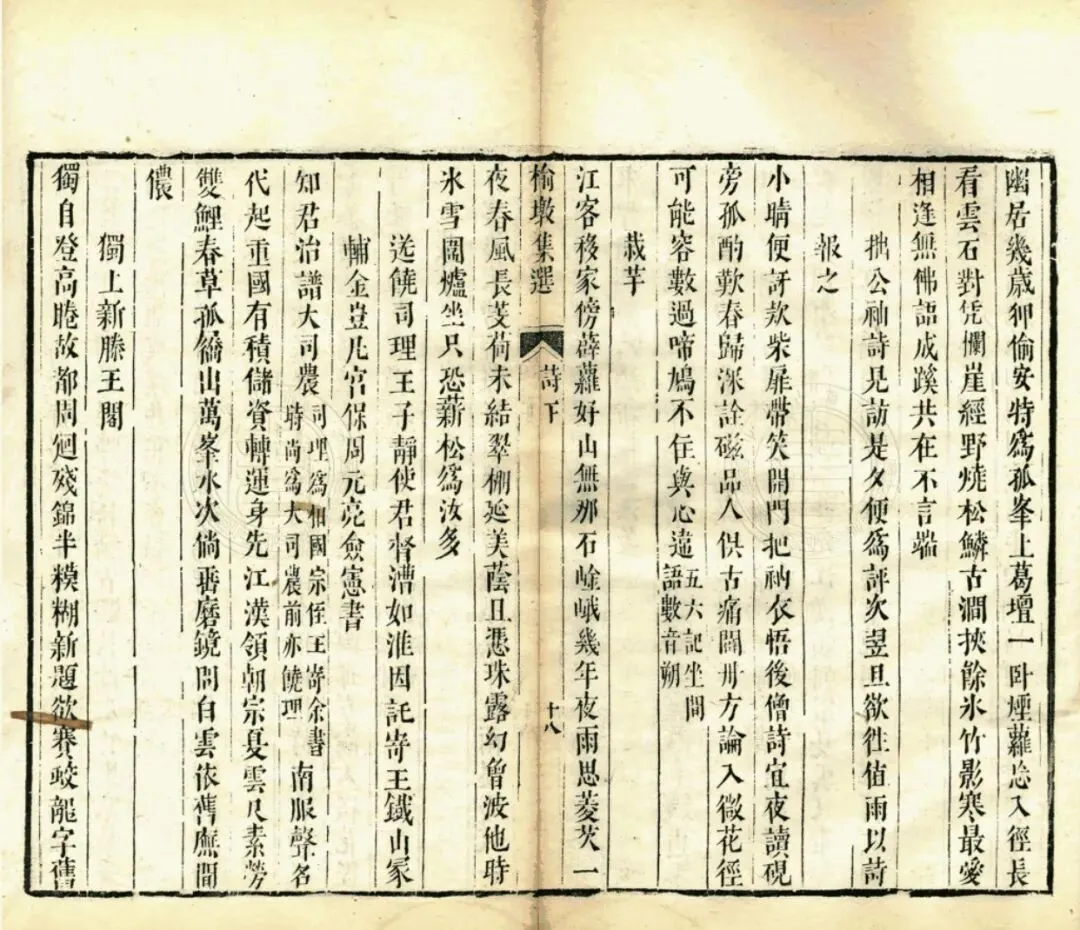 幽居幾歲狎偷安特爲孤峯上葛壇一卧煙蘿忘入徑長
看雲石對凭欄崖經野燒松鱗古澗挾餘氷竹影寒最愛
相逢無佛語成蹊共在不言端
拙公袖詩見訪是夕便爲評次翌旦欲徃值雨以詩
報之
小晴便訝欵柴扉帶笑開門把衲衣悟後僧詩宜夜讀硯
旁孤酌歎春歸深詮磁品人供古痛闘丹方論入微花徑
可能容數過啼鳩不住與心違
五六記坐間
語數音朔
栽芋
江客移家傍薜蘿好山無那石嵾峨幾年夜雨思菱芡一
榆墩集選
詩下
十八
夜春風長芰荷未結翠棚延美蔭且憑珠露幻曾波他時
氷雪圍爐坐只恐薪松爲汝多
送饒司理王子靜使君督漕如淮因託寄王鐵山冢
輔金豈凡宮保周元亮僉憲書
知君治譜大司農
司理爲相國宗侄王寄余書
時尚爲大司農前亦饒理
南服聲名
代起重國有積儲資轉運身先江漢領朝宗夏雲尺素勞
雙鯉春草孤篷出萬峯水次倘番磨鏡問白雲依舊廡間
儂
獨上新滕王閣
獨自登高睠故都周廻殘錦半糢糊新題欲賽蛟龍字舊